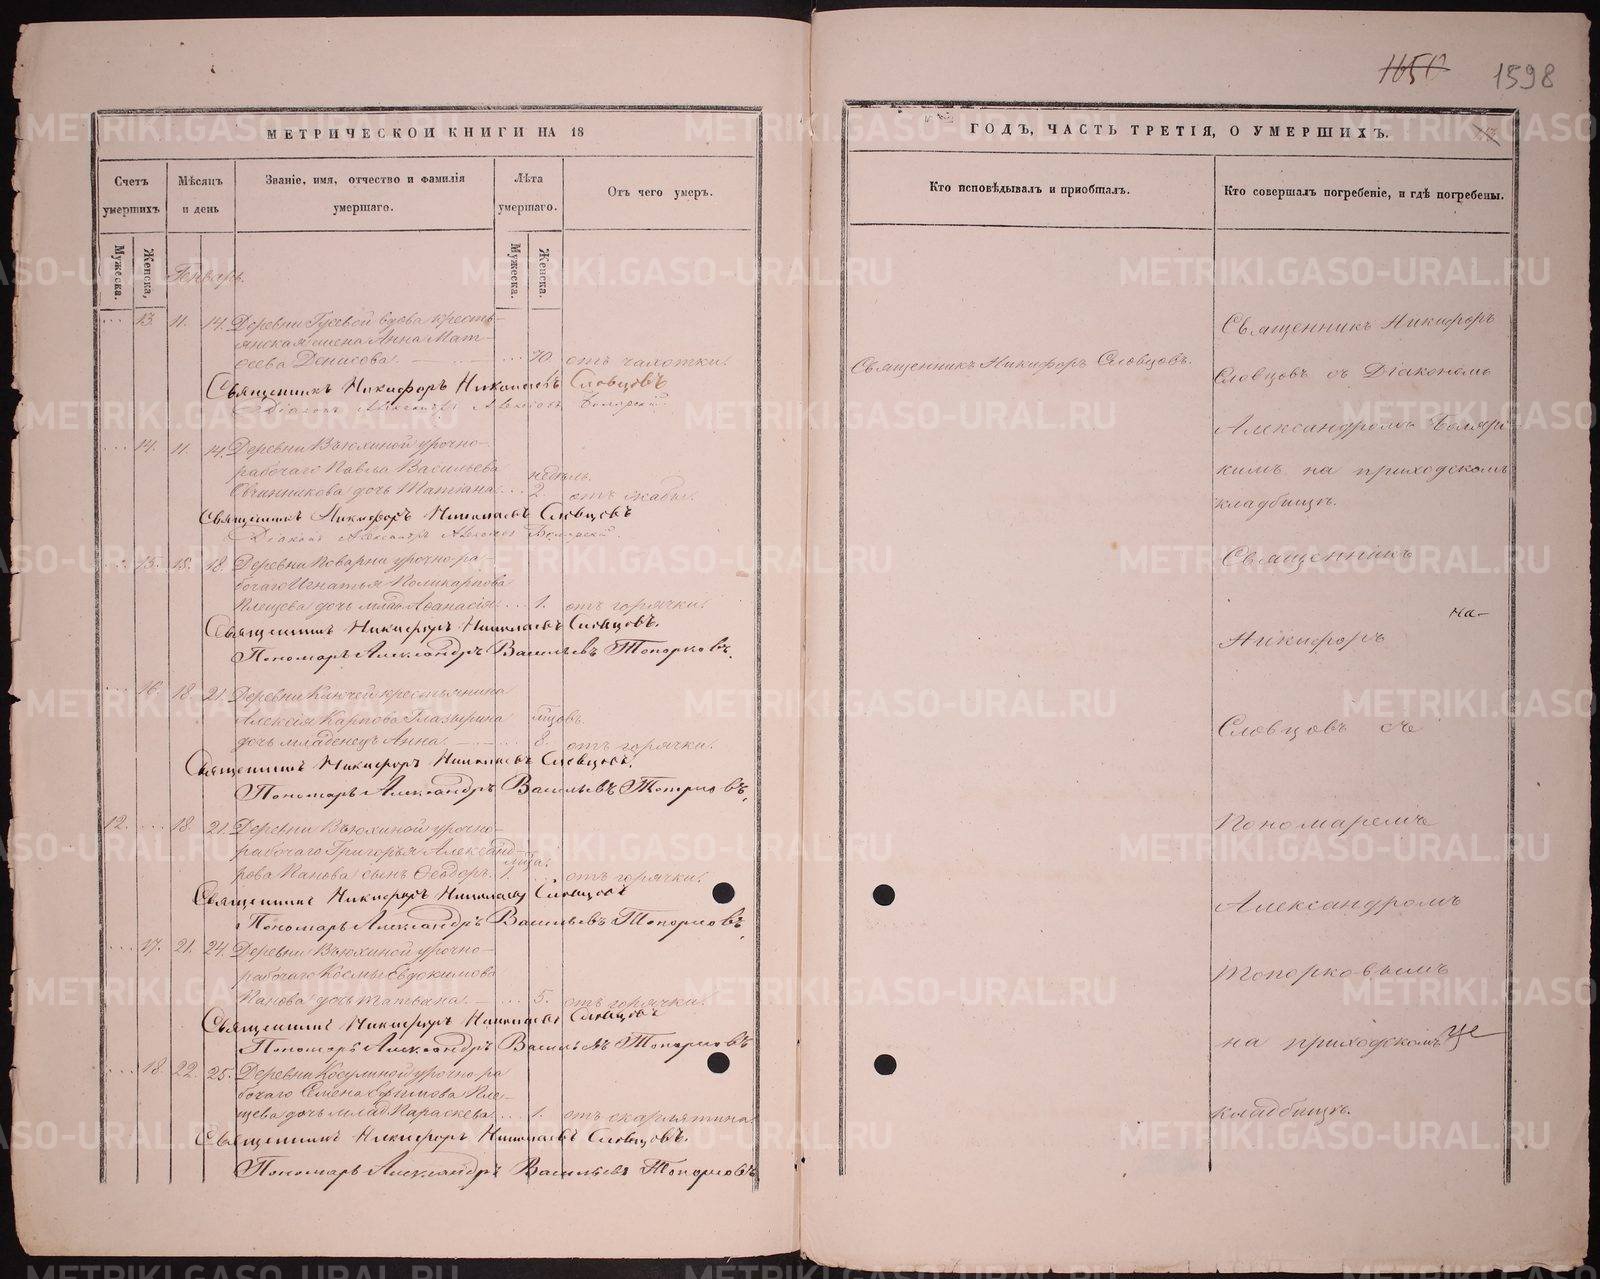 1650 1598
МЕТРИЧЕСКОЙ КНИГИ НА 18
Счетъ умершихъ
Мѣсяцъ и день
Званіе, имя, отчество и фамилія умершаго.
Лѣта умершаго.
Отъ чего умеръ.
Мужеска.
Женска,
Мужеска.
Женска.
Январь.
13. 11. 14. Деревни Гусевой вдова кресть-
янская жена Анна Мат-
ѳеева Денисова. 70. отъ чахотки.
Священникъ Никифоръ Николаевъ Словцовъ
Діаконъ Александръ Алексѣевъ
14. 11. 14. Деревни Вьюхиной урочно-
рабочаго Павла Васильева
недѣль.
Овчинникова дочь Татіана. 2. отъ жабы.
Священникъ Никифоръ Николаевъ Словцовъ
Діаконъ Александръ Алексѣевъ
15. 18. 18. Деревни Поварни урочно-ра-
бочаго Игнатья Поликарпова
Плещева дочь млад. Аѳанасія. 1. отъ горячки.
Священникъ Никифоръ Николаевъ Словцовъ.
Пономарь Александръ Васильевъ Топорковъ.
16. 18. 21. Деревни Ключей крестьянина
Алексія Карпова Глазырина мѣсцовъ.
дочь младенецъ Анна. 8. отъ горячки.
Священникъ Никифоръ Николаевъ Словцовъ.
Пономарь Александръ Васильевъ Топорковъ.
12. 18. 21. Деревни Вьюхиной урочно-
рабочаго Григорья Александ-
рова Панова сынъ Ѳеодоръ. 1. отъ горячки.
Священникъ Никифоръ Николаевъ Словцовъ
Пономарь Александръ Васильевъ Топорковъ.
17. 21. 24. Деревни Вьюхиной урочно-
рабочаго Космы Евдокимова
Панова дочь Татьяна. 5. отъ горячки.
Священникъ Никифоръ Николаевъ Словцовъ
Пономарь Александръ Васильевъ Топорковъ
18. 22. 25. Деревни Косулиной урочно-ра
бочаго Семена Ефимова Пле-
щева дочь млад. Параскева. 1. отъ скарлятина.
Священникъ Никифоръ Николаевъ Словцовъ.
Пономарь Александръ Васильевъ Топорковъ
ГОДЪ, ЧАСТЬ ТРЕТІЯ, О УМЕРШИХЪ.
Кто исповѣдывалъ и приобщалъ.
Кто совершалъ погребеніе, и гдѣ погребены.
Священникъ Никифоръ Словцовъ.
Священникъ Никифоръ
Словцовъ съ Діакономъ
Александромъ Боляр
кимъ на приходскомъ
кладбищѣ.
Священникъ
на-
Никифоръ
Словцовъ съ
Пономаремъ
Александромъ
Топорковымъ
на приходскомъ
кладбищѣ.
METRIKI.GASO-URAL.RU